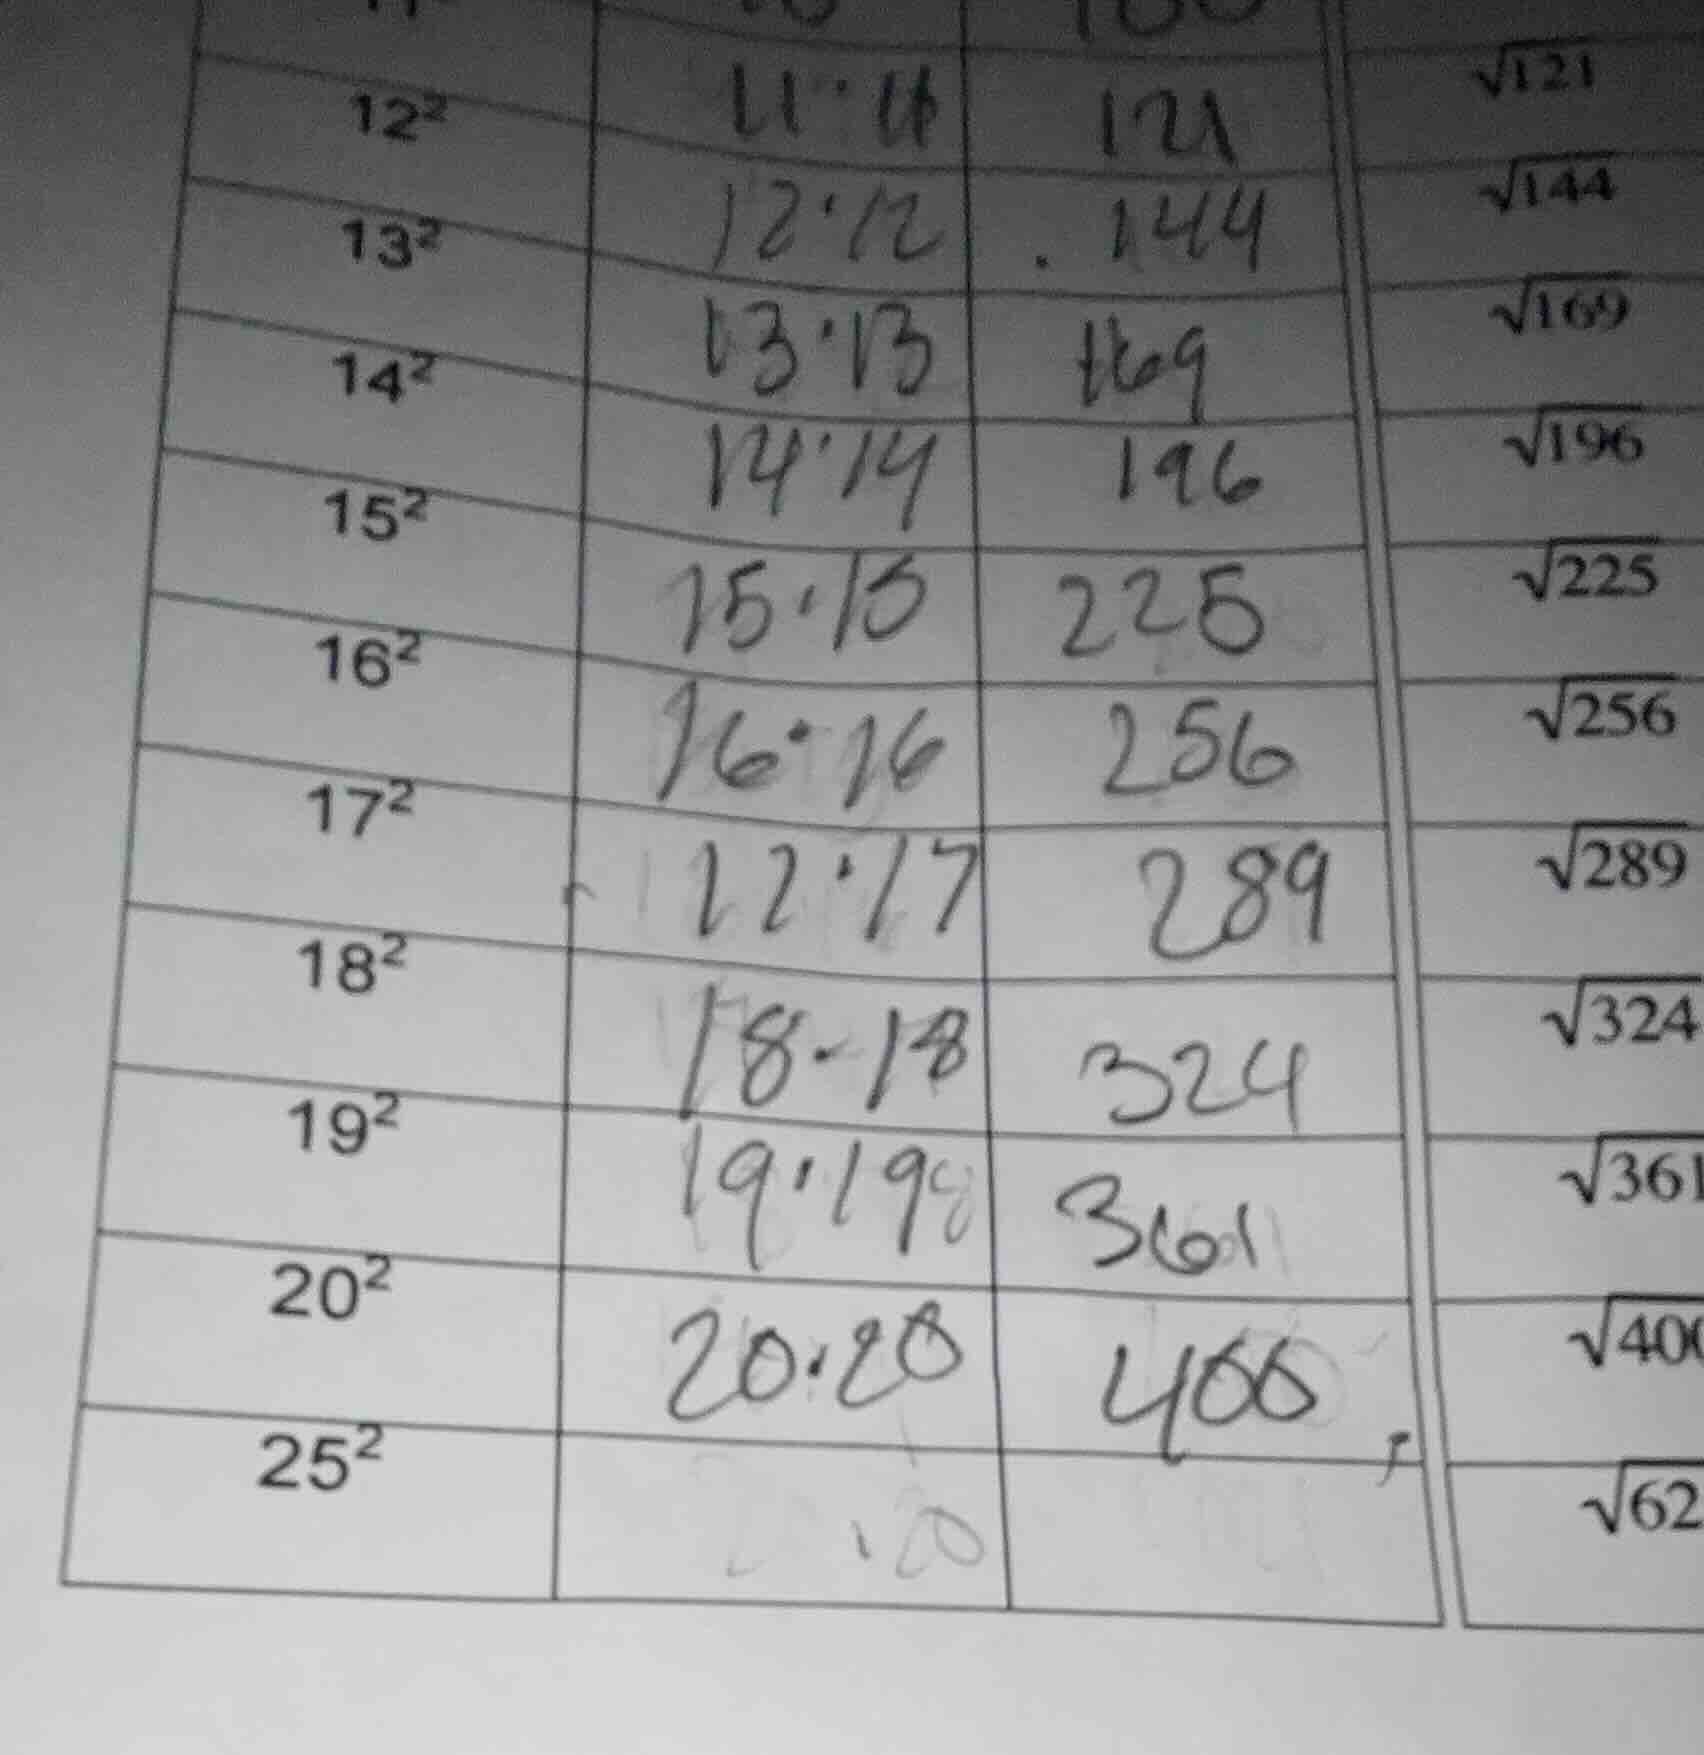 11·11 121 √121
12² 12·12 144 √144
13² 13·13 169 √169
14² 14·14 196 √196
15² 15·15 225 √225
16² 16·16 256 √256
17² 17·17 289 √289
18² 18·18 324 √324
19² 19·19 361 √361
20² 20·20 400 √400
25² √62